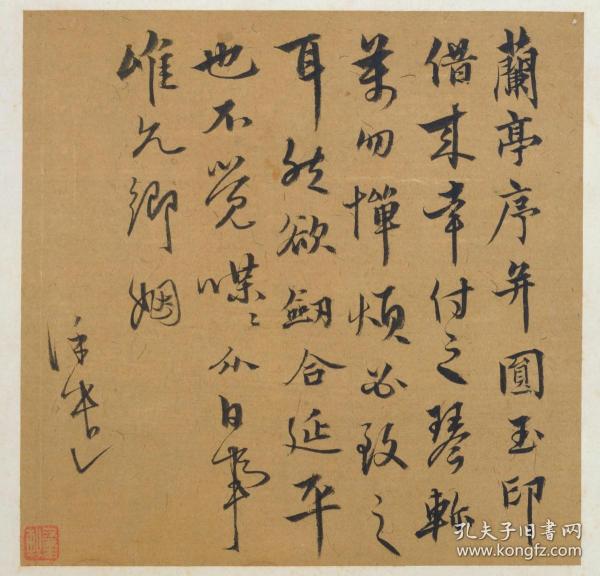 蘭亭序并圓玉印
借来幸付之琴
萬勿憚煩必致之
耳然欲劒合延平
也不覚喋〻事
唯允卿姻
孔夫子旧书网
www.kongfz.com